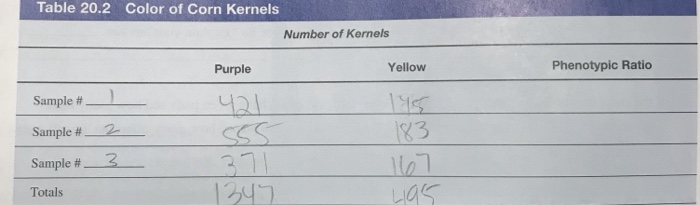 Table 20.2 Color of Corn Kernels
Number of Kernels
Purple Yellow Phenotypic Ratio
Sample # 1 421 145
Sample # 2 555 183
Sample # 3 371 167
Totals 1347 495